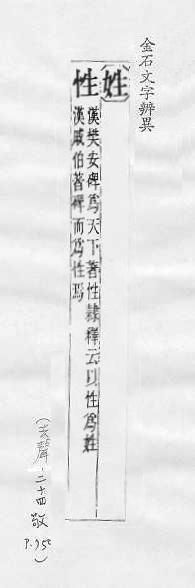 金石文字辨異
姓
性 漢樊安碑爲天下著性隸釋云以性爲姓
漢戚伯著碑而爲性焉
(去聲·二十四敬
P.95